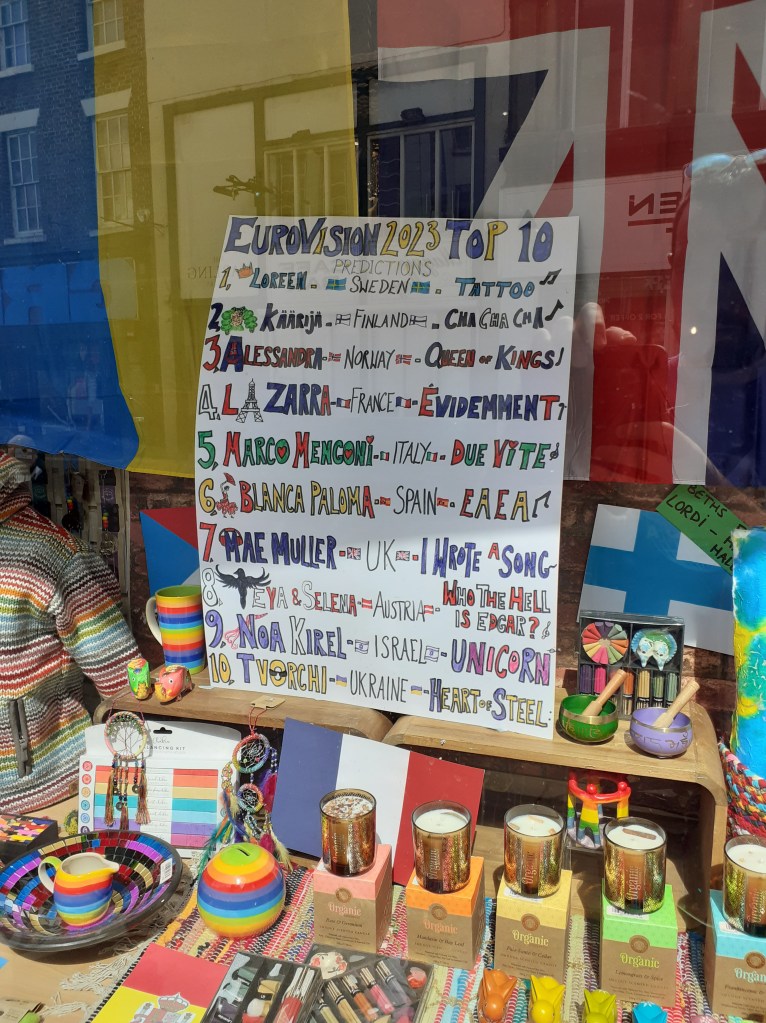 EUROVISION 2023 TOP 10
PREDICTIONS
1. LOREEN - SWEDEN - TATTOO
2. KÄÄRIJÄ - FINLAND - CHA CHA CHA
3. ALESSANDRA - NORWAY - QUEEN OF KINGS
4. LA ZARRA - FRANCE - ÉVIDEMMENT
5. MARCO MENGONI - ITALY - DUE VITE
6. BLANCA PALOMA - SPAIN - EAEA
7 MAE MULLER - UK - I WROTE A SONG
8. TEYA & SELENA - AUSTRIA - WHO THE HELL
IS EDGAR?
9. NOA KIREL - ISRAEL - UNICORN
10. TVORCHI - UKRAINE - HEART OF STEEL
BETHS
LORDI -
HAL
LANCING KIT
Organic
Organic
Organic
Organic
Organic